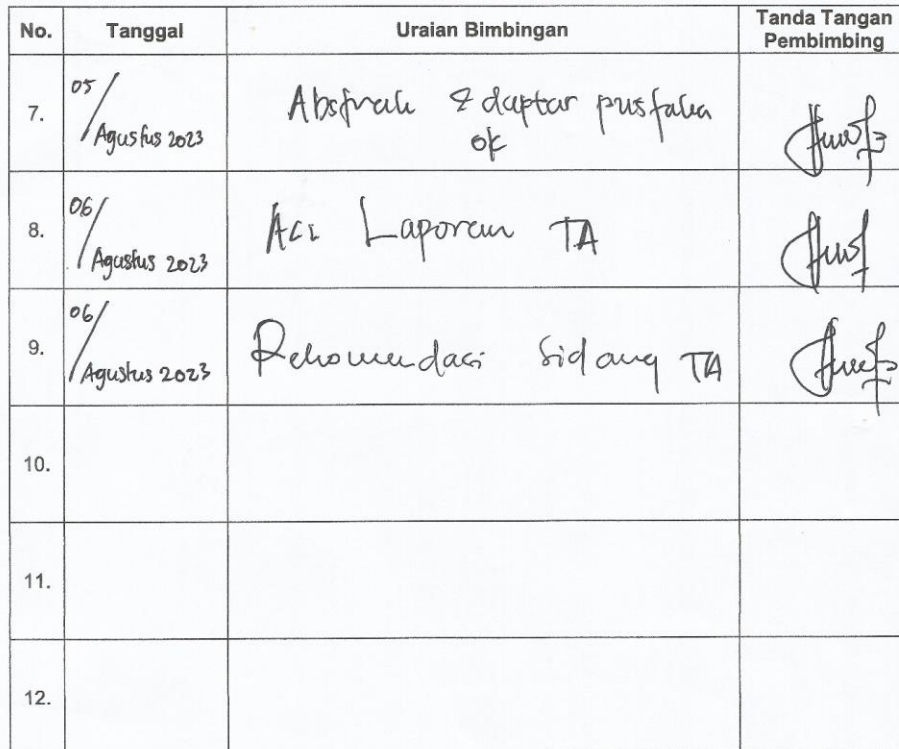 No. Tanggal Uraian Bimbingan Tanda Tangan
Pembimbing
7. 05/ Agustus 2023 Abstrak & daptar pustaka
ok
8. 06/ Agustus 2023 Acc Laporan TA
9. 06/ Agustus 2023 Rekomendasi Sidang TA
10.
11.
12.